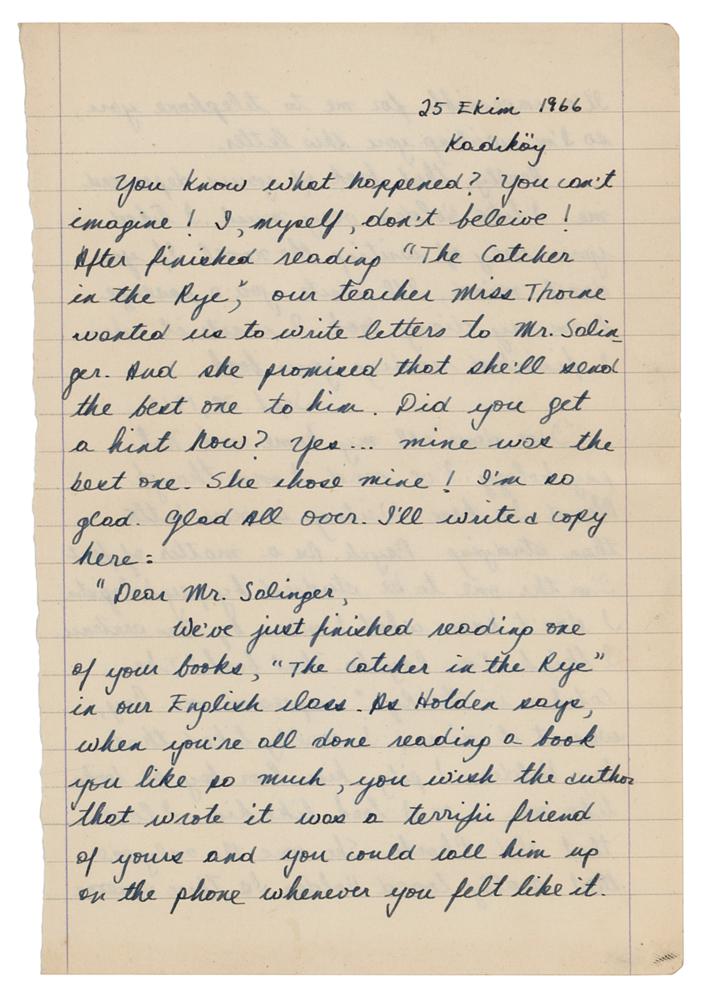 25 Ekim 1966
Kadıköy
You know what happened? You can't
imagine! I, myself, don't beleive!
After finished reading "The Catcher
in the Rye", our teacher Miss Thorne
wanted us to write letters to Mr. Salin-
ger. And she promised that she'll send
the best one to him. Did you get
a hint now? Yes... mine was the
best one. She chose mine! I'm so
glad. Glad All Over. I'll write a copy
here:
"Dear Mr. Salinger,
We've just finished reading one
of your books, "The Catcher in the Rye"
in our English class. As Holden says,
when you're all done reading a book
you like so much, you wish the author
that wrote it was a terrific friend
of yours and you could call him up
on the phone whenever you felt like it.